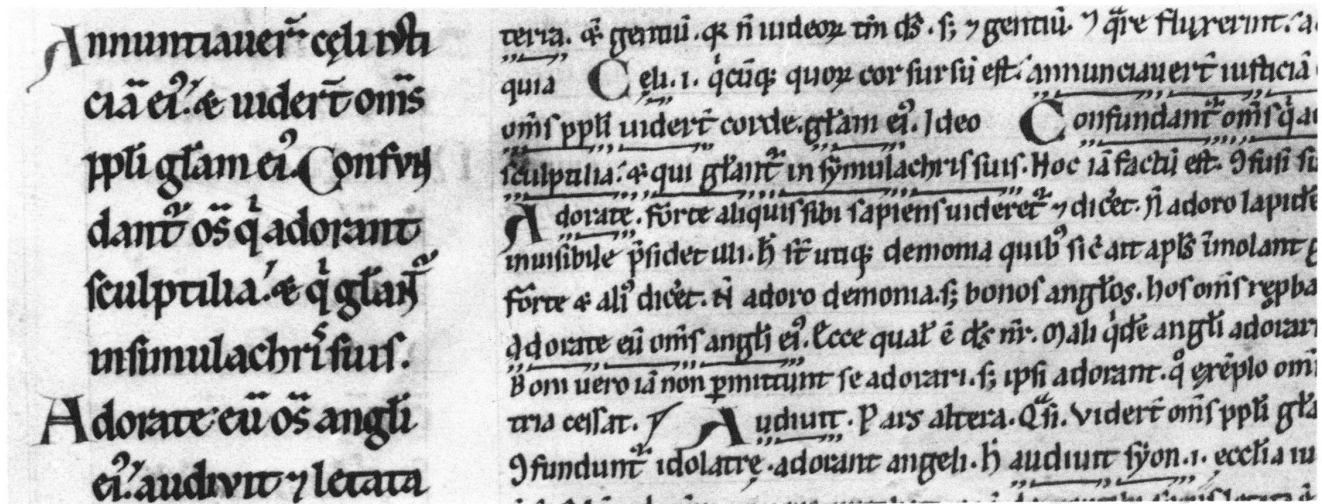 Annuntiauer̄ cęli iusti
ciā ei᾿. ⁊ uider̄t om̄s
ppl̄i gl̄am ei᾿. Confun
dant᷑ os̄ qi adorant
sculptilia. ⁊ qi gl̄ant᷑
in simulachris suis.
Adorate eū os̄ angl̄i
ei᾿. audiuit ⁊ letata
terra. gentiū. ñ uideoꝝ tm̄ ds̄. s; ⁊ gentiū. ⁊ qͣre fluxerint.
quia Cęli. i. quoꝝ cor sursū est. annunciauer̄t iusticiā
om̄s ppl̄i uider̄t corde. gl̄am ei᾿. Ideo Confundant᷑ om̄s qi
sculptilia. ⁊ qui gl̄ant᷑ in symulachris suis. Hoc iā factū est. ꝯfusi
Adorate. Forte aliquis sibi sapiens uideret᷑ ⁊ dicet. ñ adoro lapidē
inuisibile p̄sidet illi. h̄ st̄ utiqꝫ demonia quib᾿ sic̄ ait apl̄s īmolant
forte ⁊ ali᾿ dicet. Ñ adoro demonia. s; bonos angl̄os. hos om̄s
Adorate eū om̄s angl̄i ei᾿. Ecce qual̄ ē ds̄ nr̄. Mali qidē angl̄i
Boni uero iā non ꝑmittunt se adorari. s; ipsi adorant. qͦ exēplo
tria cessat. Audiuit. Pars altera. Qͣsi. Vider̄t om̄s ppl̄i
ꝯfundunt᷑ idolatrę. adorant angeli. h̄ audiuit syon. i. ecclia